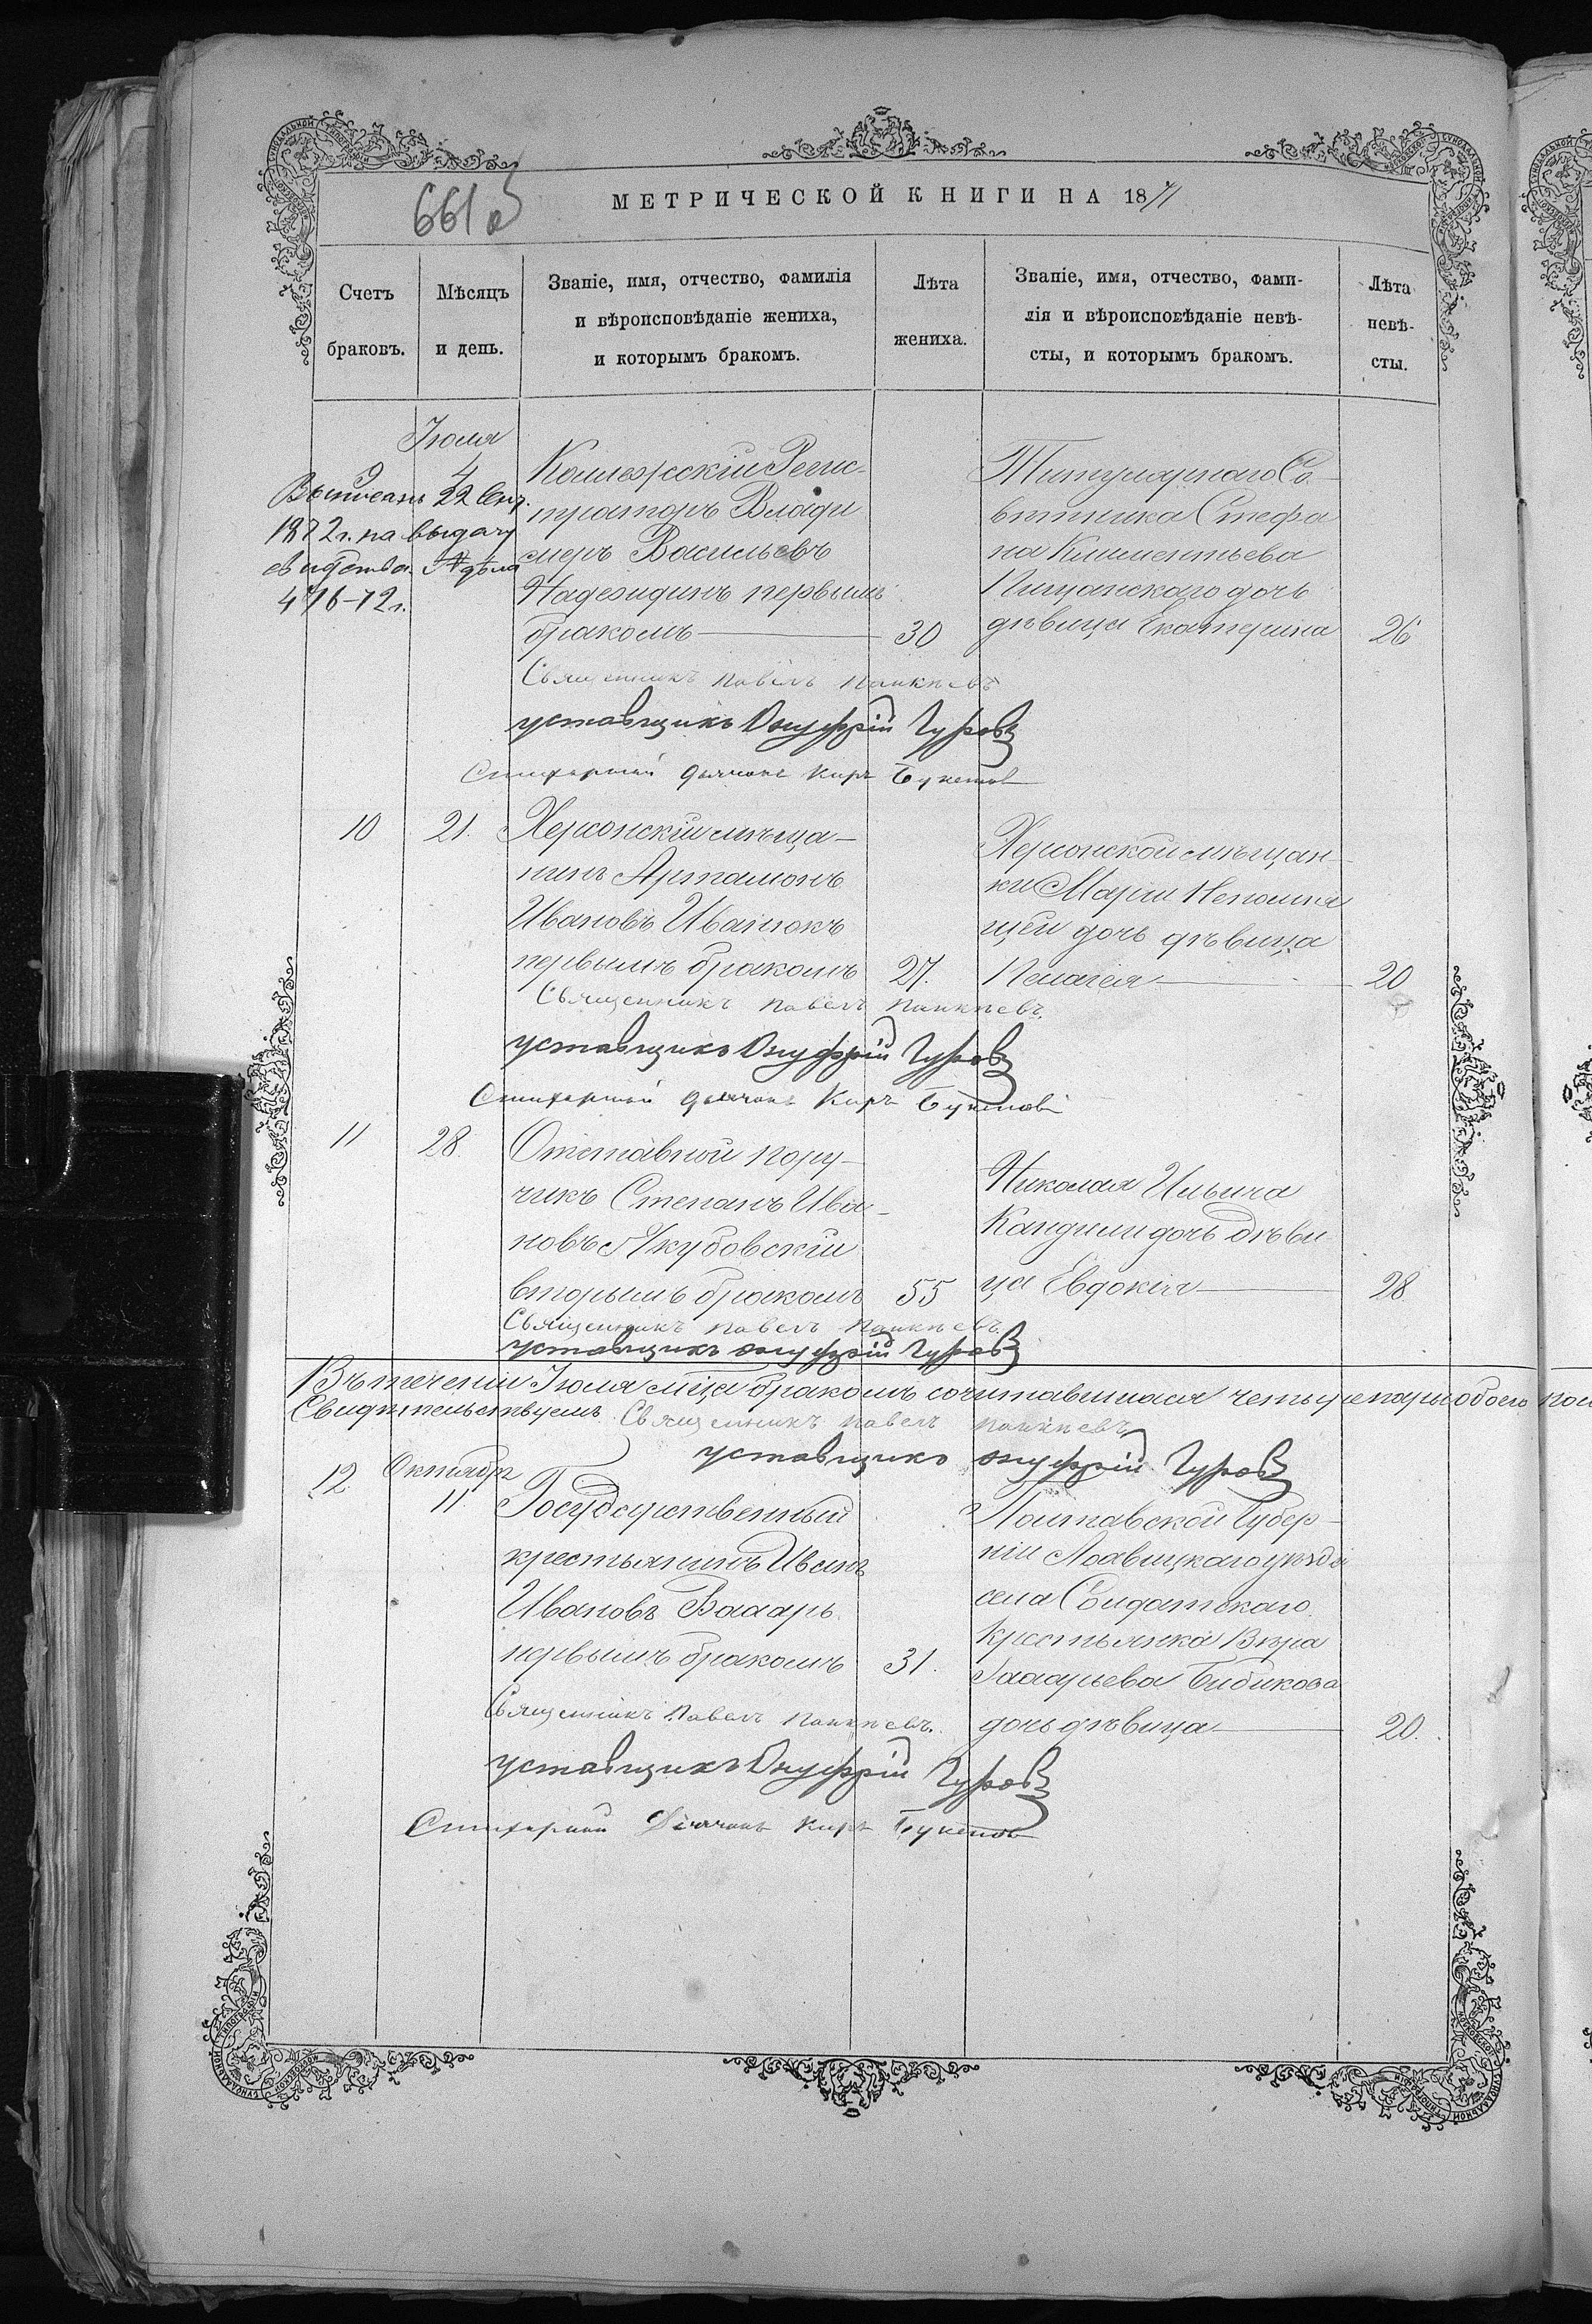 661 об
МЕТРИЧЕСКОЙ КНИГИ НА 1871
Счетъ браковъ.
Мѣсяцъ и день.
Званіе, имя, отчество, фамилія
и вѣроисповѣданіе жениха,
и которымъ бракомъ.
Лѣта
жениха.
Званіе, имя, отчество, фами-
лія и вѣроисповѣданіе невѣ-
сты, и которымъ бракомъ.
Лѣта
невѣ-
сты.
Іюля
9
4
Выписанъ 22 Сент.
1872 г. на выдачу
свидѣтельства. № дѣла
476-72 г.
Коллежскій Регис-
траторъ Влади
миръ Васильевъ
Надеждинъ первымъ
бракомъ
30
Титулярнаго Со-
вѣтника Стефа
на Климентьева
Пищанскаго дочь
дѣвица Екатерина
26
Священникъ Павелъ
уставщикъ Онуфрій Гуровъ
Стихарный дьячокъ Киръ Букетов
10
21.
Херсонскій мѣща-
нинъ Артамонъ
Ивановъ Иванюкъ
первымъ бракомъ
27.
Херсонской мѣщан-
ки Маріи Непомня
щей дочь дѣвица
Пелагея
20
Священникъ Павелъ
уставщикъ Онуфрій Гуровъ
Стихарный дьячокъ Киръ Букетов
11
28.
Отставной пору-
чикъ Степанъ Ива-
новъ Якубовскій
вторымъ бракомъ
55
Николая Ильича
Кандили дочь дѣви
ца Евдокія
28
Священникъ Павелъ
уставщикъ онуфрій Гуровъ
Въ теченіи Іюля м-ца бракомъ сочитавшихся четыре пары обоего пола
Свидѣтельствуемъ. Священникъ Павелъ
уставщикъ онуфрій Гуровъ
12.
Октября
11.
Государственный
крестьянинъ Иванъ
Ивановъ
первымъ бракомъ
31.
Полтавской Губер-
ніи уѣзда
села Солдатскаго
Крестьянка Вѣра
Бибикова
дочь дѣвица
20.
Священникъ Павелъ
уставщикъ Онуфрій Гуровъ
Стихарный Дьячокъ Киръ Букетов